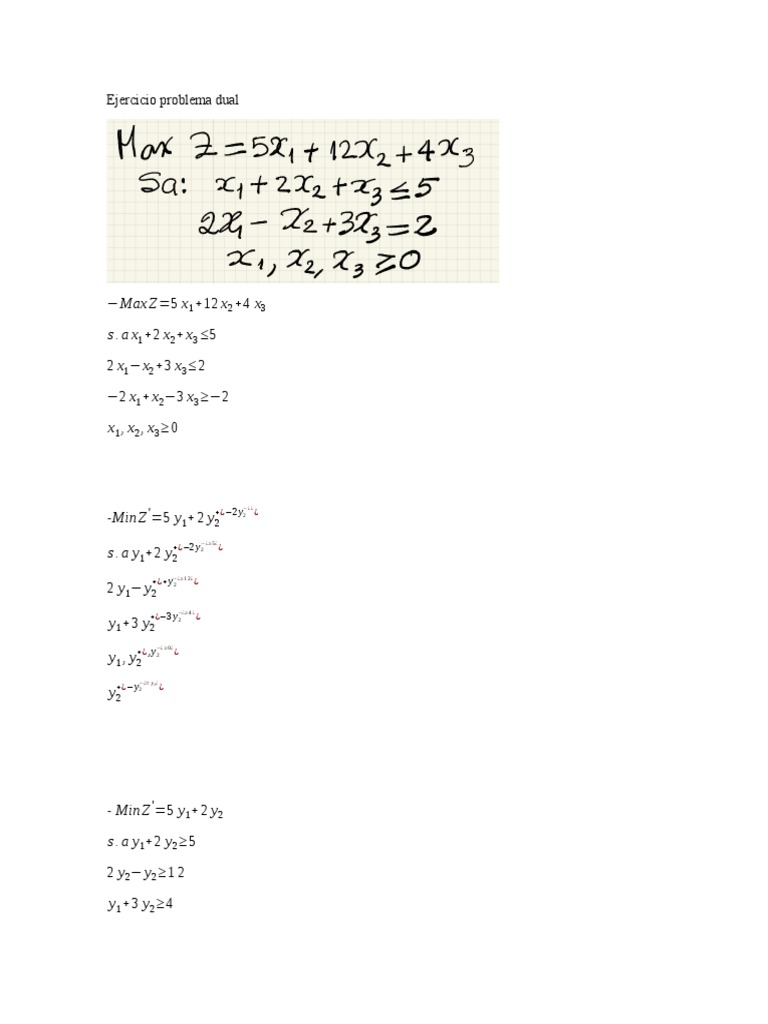 Ejercicio problema dual
Max Z = 5x₁ + 12x₂ + 4x₃
Sa: x₁ + 2x₂ + x₃ ≤ 5
2x₁ - x₂ + 3x₃ = 2
x₁, x₂, x₃ ≥ 0
−MaxZ=5 x₁+12 x₂+4 x₃
s.a x₁+2 x₂+x₃≤5
2 x₁−x₂+3 x₃≤2
−2 x₁+x₂−3 x₃≥−2
x₁, x₂, x₃≥0
-MinZ'=5 y₁+2 y₂⁺¿−2y₂
s.a y₁+2 y₂⁺¿−2y₂
2 y₁−y₂⁺¿+y₂
y₁+3 y₂⁺¿−3y₂
y₁, y₂⁺¿,y₂
y₂⁺¿−y₂
- MinZ'=5 y₁+2 y₂
s.a y₁+2 y₂≥5
2 y₂−y₂≥12
y₁+3 y₂≥4